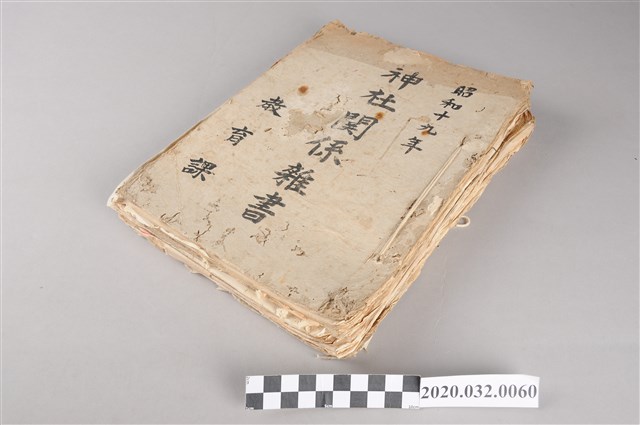 昭和十九年
神社関係雑書
教育課
2020.032.0060